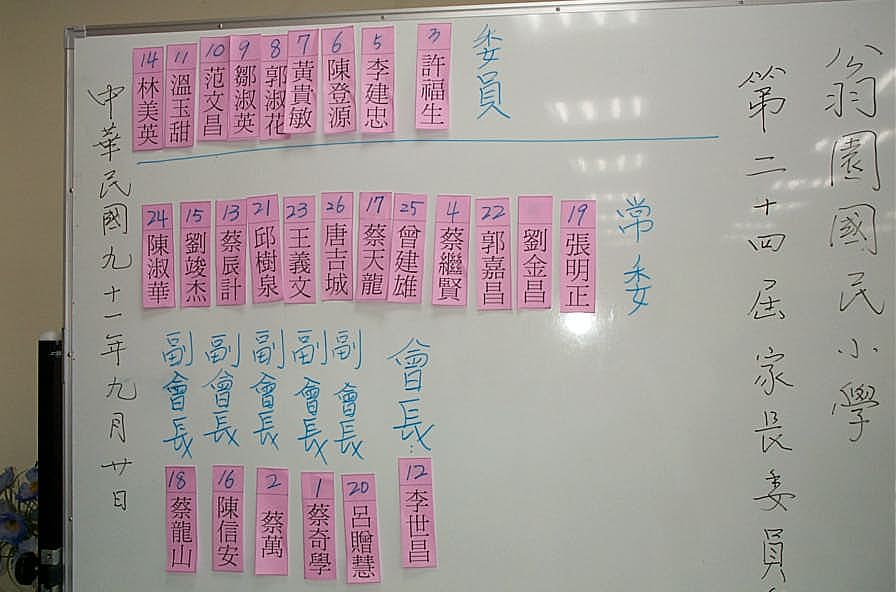 翁園國民小學
第二十四屆家長委員
委員
3 許福生
5 李建忠
6 陳登源
7 黃貴敏
8 郭淑花
9 鄒淑英
10 范文昌
11 溫玉甜
14 林美英
常委
19 張明正
劉金昌
22 郭嘉昌
4 蔡繼賢
25 曾建雄
17 蔡天龍
26 唐吉城
23 王義文
21 邱樹泉
13 蔡辰計
15 劉竣杰
24 陳淑華
會長
12 李世昌
副會長
20 呂贈慧
副會長
1 蔡奇學
副會長
2 蔡萬
副會長
16 陳信安
副會長
18 蔡龍山
中華民國九十一年九月廿日